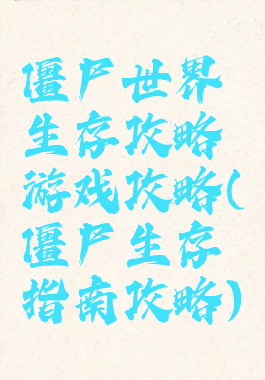 僵尸世界
生存攻略
游戏攻略(
僵尸生存
指南攻略)